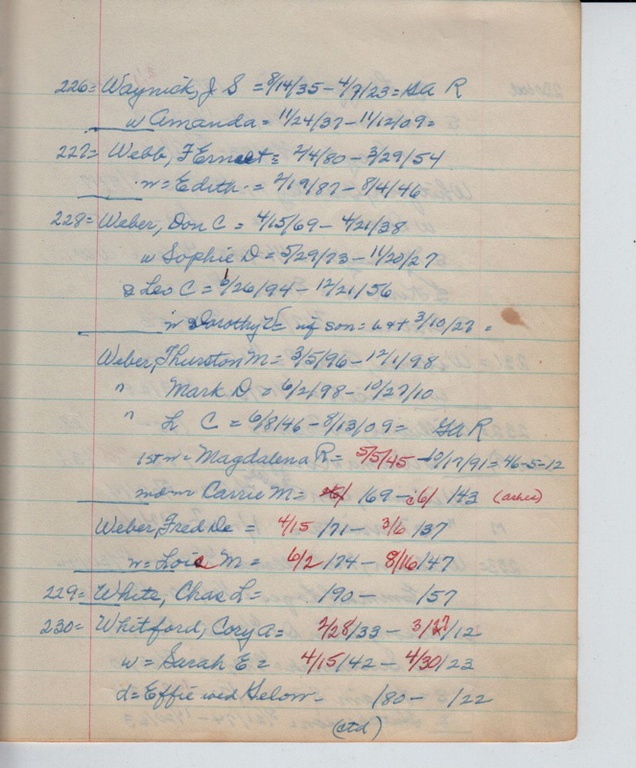 226= Waynick, J S = 8/14/35 - 4/9/23 = GA R
w Amanda = 11/24/37 - 11/12/09 =
227= Webb, F Ernest = 2/4/80 - 3/29/54
w = Edith = 2/19/87 - 8/4/46
228= Weber, Don C = 4/15/69 - 4/21/38
w Sophie D = 5/29/73 - 11/20/27
s Leo C = 6/26/94 - 12/21/56
w Dorothy V = inf son = b & d 3/10/27 =
Weber, Thurston M = 3/5/96 - 12/1/98
" Mark D = 6/2/98 - 10/27/10
" L C = 6/8/46 - 8/13/09 = GA R
1st w = Magdalena R = 5/5/45 - 10/17/91 = 46-5-12
2nd w Carrie M = /69 - /6/ /43 (ashes)
Weber, Fred De = 4/15/71 - 3/6/37
w = Lois M = 6/2/74 - 8/16/47
229= White, Chas L = /90 - /57
230= Whitford, Cory A = 2/28/33 - 3/27/12
w = Sarah E = 4/15/42 - 4/30/23
d = Effie wed Gelow - /80 - /22
(ctd)